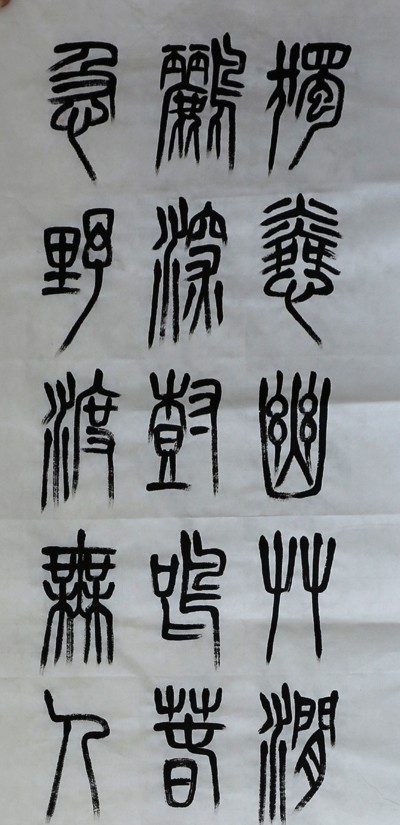 獨憐幽草澗
鸝深樹鳴春
急野渡無人